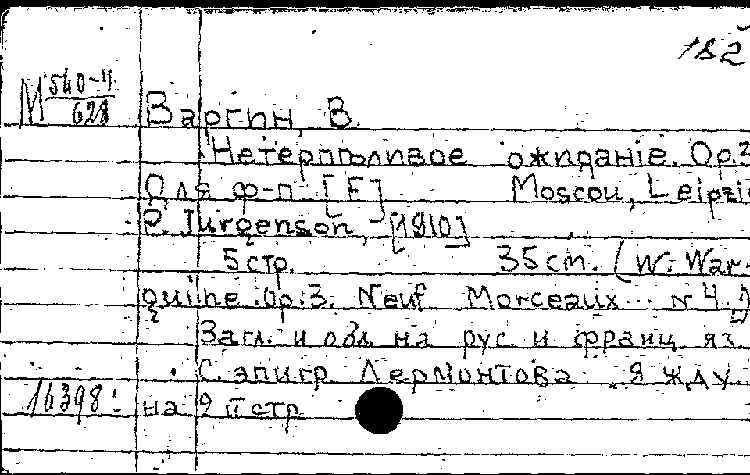 182
М 540-4 / 628
Варгин, В.
Нетерпѣливое ожиданiе. Op.3
Для ф-п. [F] Moscou, Leipzi
P. Jurgenson, [1910]
5 стр. 35 cm. (W. War-
guine. Op. 3. Neuf Morceaux... N 4.)
Загл. и обл. на рус. и франц. яз.
С эпигр. Лермонтова Я жду
16398: на 2й стр